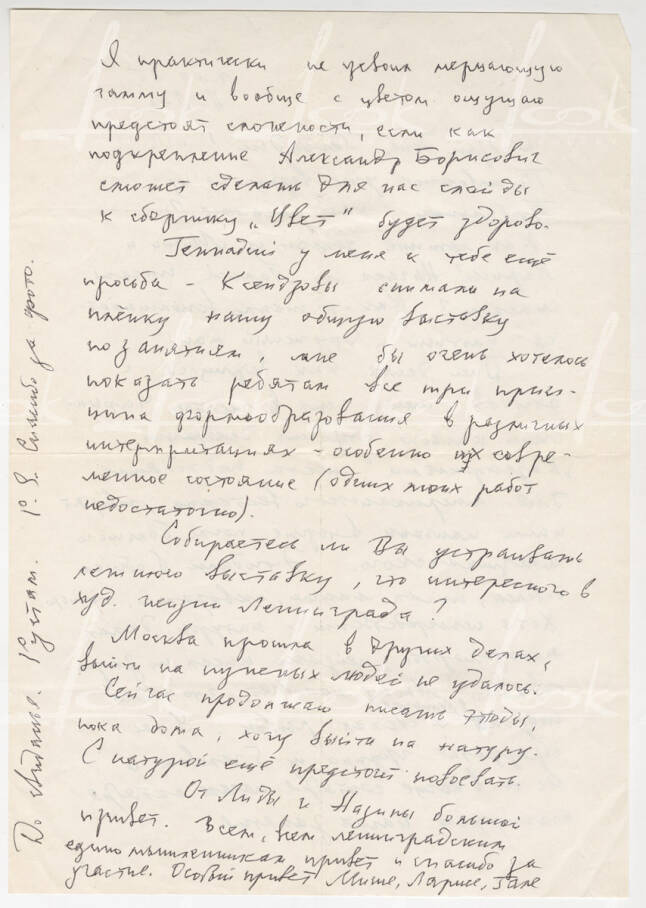 Я практически не усвоил мерцающую
гамму и вообще с цветом ощущаю
предстоят сложности, если как
подкрепление Александр Борисович
сможет сделать для нас слайды
к сборнику „Цвет" будет здорово.
Геннадий у меня к тебе ещё
просьба – Ксендзовы снимали на
плёнку нашу общую выставку
по занятиям, мне бы очень хотелось
показать ребятам все три прин-
ципа формообразования в различных
интерпритациях – особенно их совре-
менное состояние (одних моих работ
недостаточно).
Собираетесь ли Вы устраивать
летнюю выставку, что интересного в
худ. жизни Ленинграда?
Москва прошла в других делах,
выйти на нужных людей не удалось.
Сейчас продолжаю писать этюды,
пока дома, хочу выйти на натуру.
С натурой ещё предстоит повоевать.
От Лиды и большой
привет. Всем, всем ленинградским
единомышленникам привет и спасибо за
участие. Особый привет Мише, Ларисе, Гале
До свидания. Рустам. P.S. Спасибо за фото.